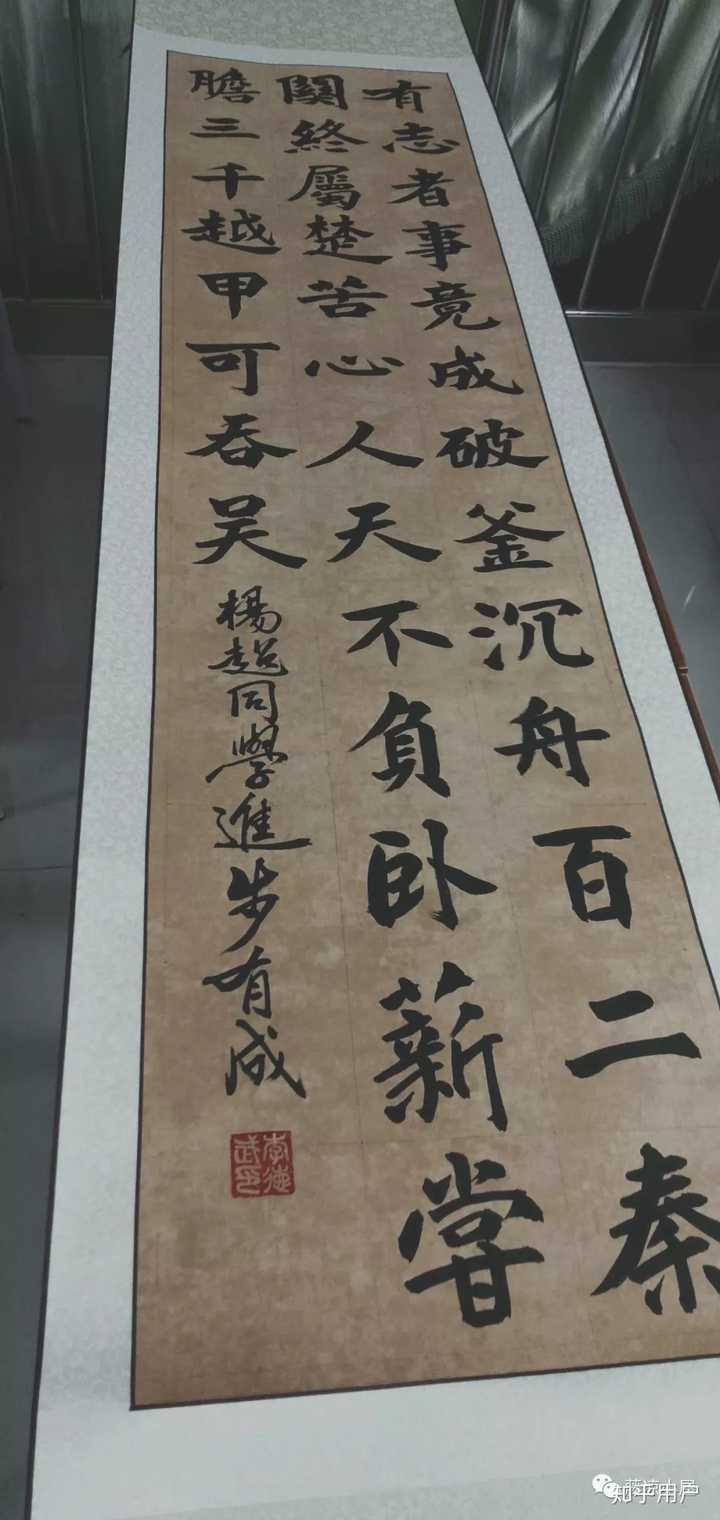 有志者事竟成破釜沉舟百二秦
關終屬楚苦心人天不負卧薪嘗
膽三千越甲可吞吴
楊超同學進步有成
李德武印
知乎用户